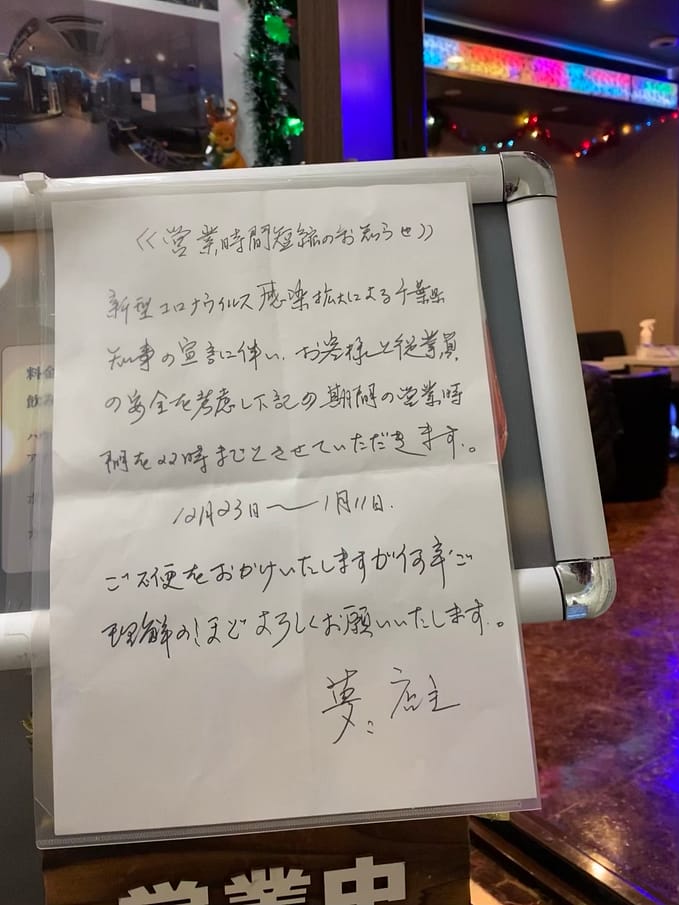 <<営業時間短縮のお知らせ>>
新型コロナウイルス感染拡大による千葉県
知事の宣言に伴い、お客様と従業員
の安全を考慮し下記の期間の営業時
間を22時までとさせていただきます。
12月23日〜1月11日.
ご不便をおかけいたしますが何卒ご
理解のほどよろしくお願いいたします。
夢 店主
料金
飲み
営業中